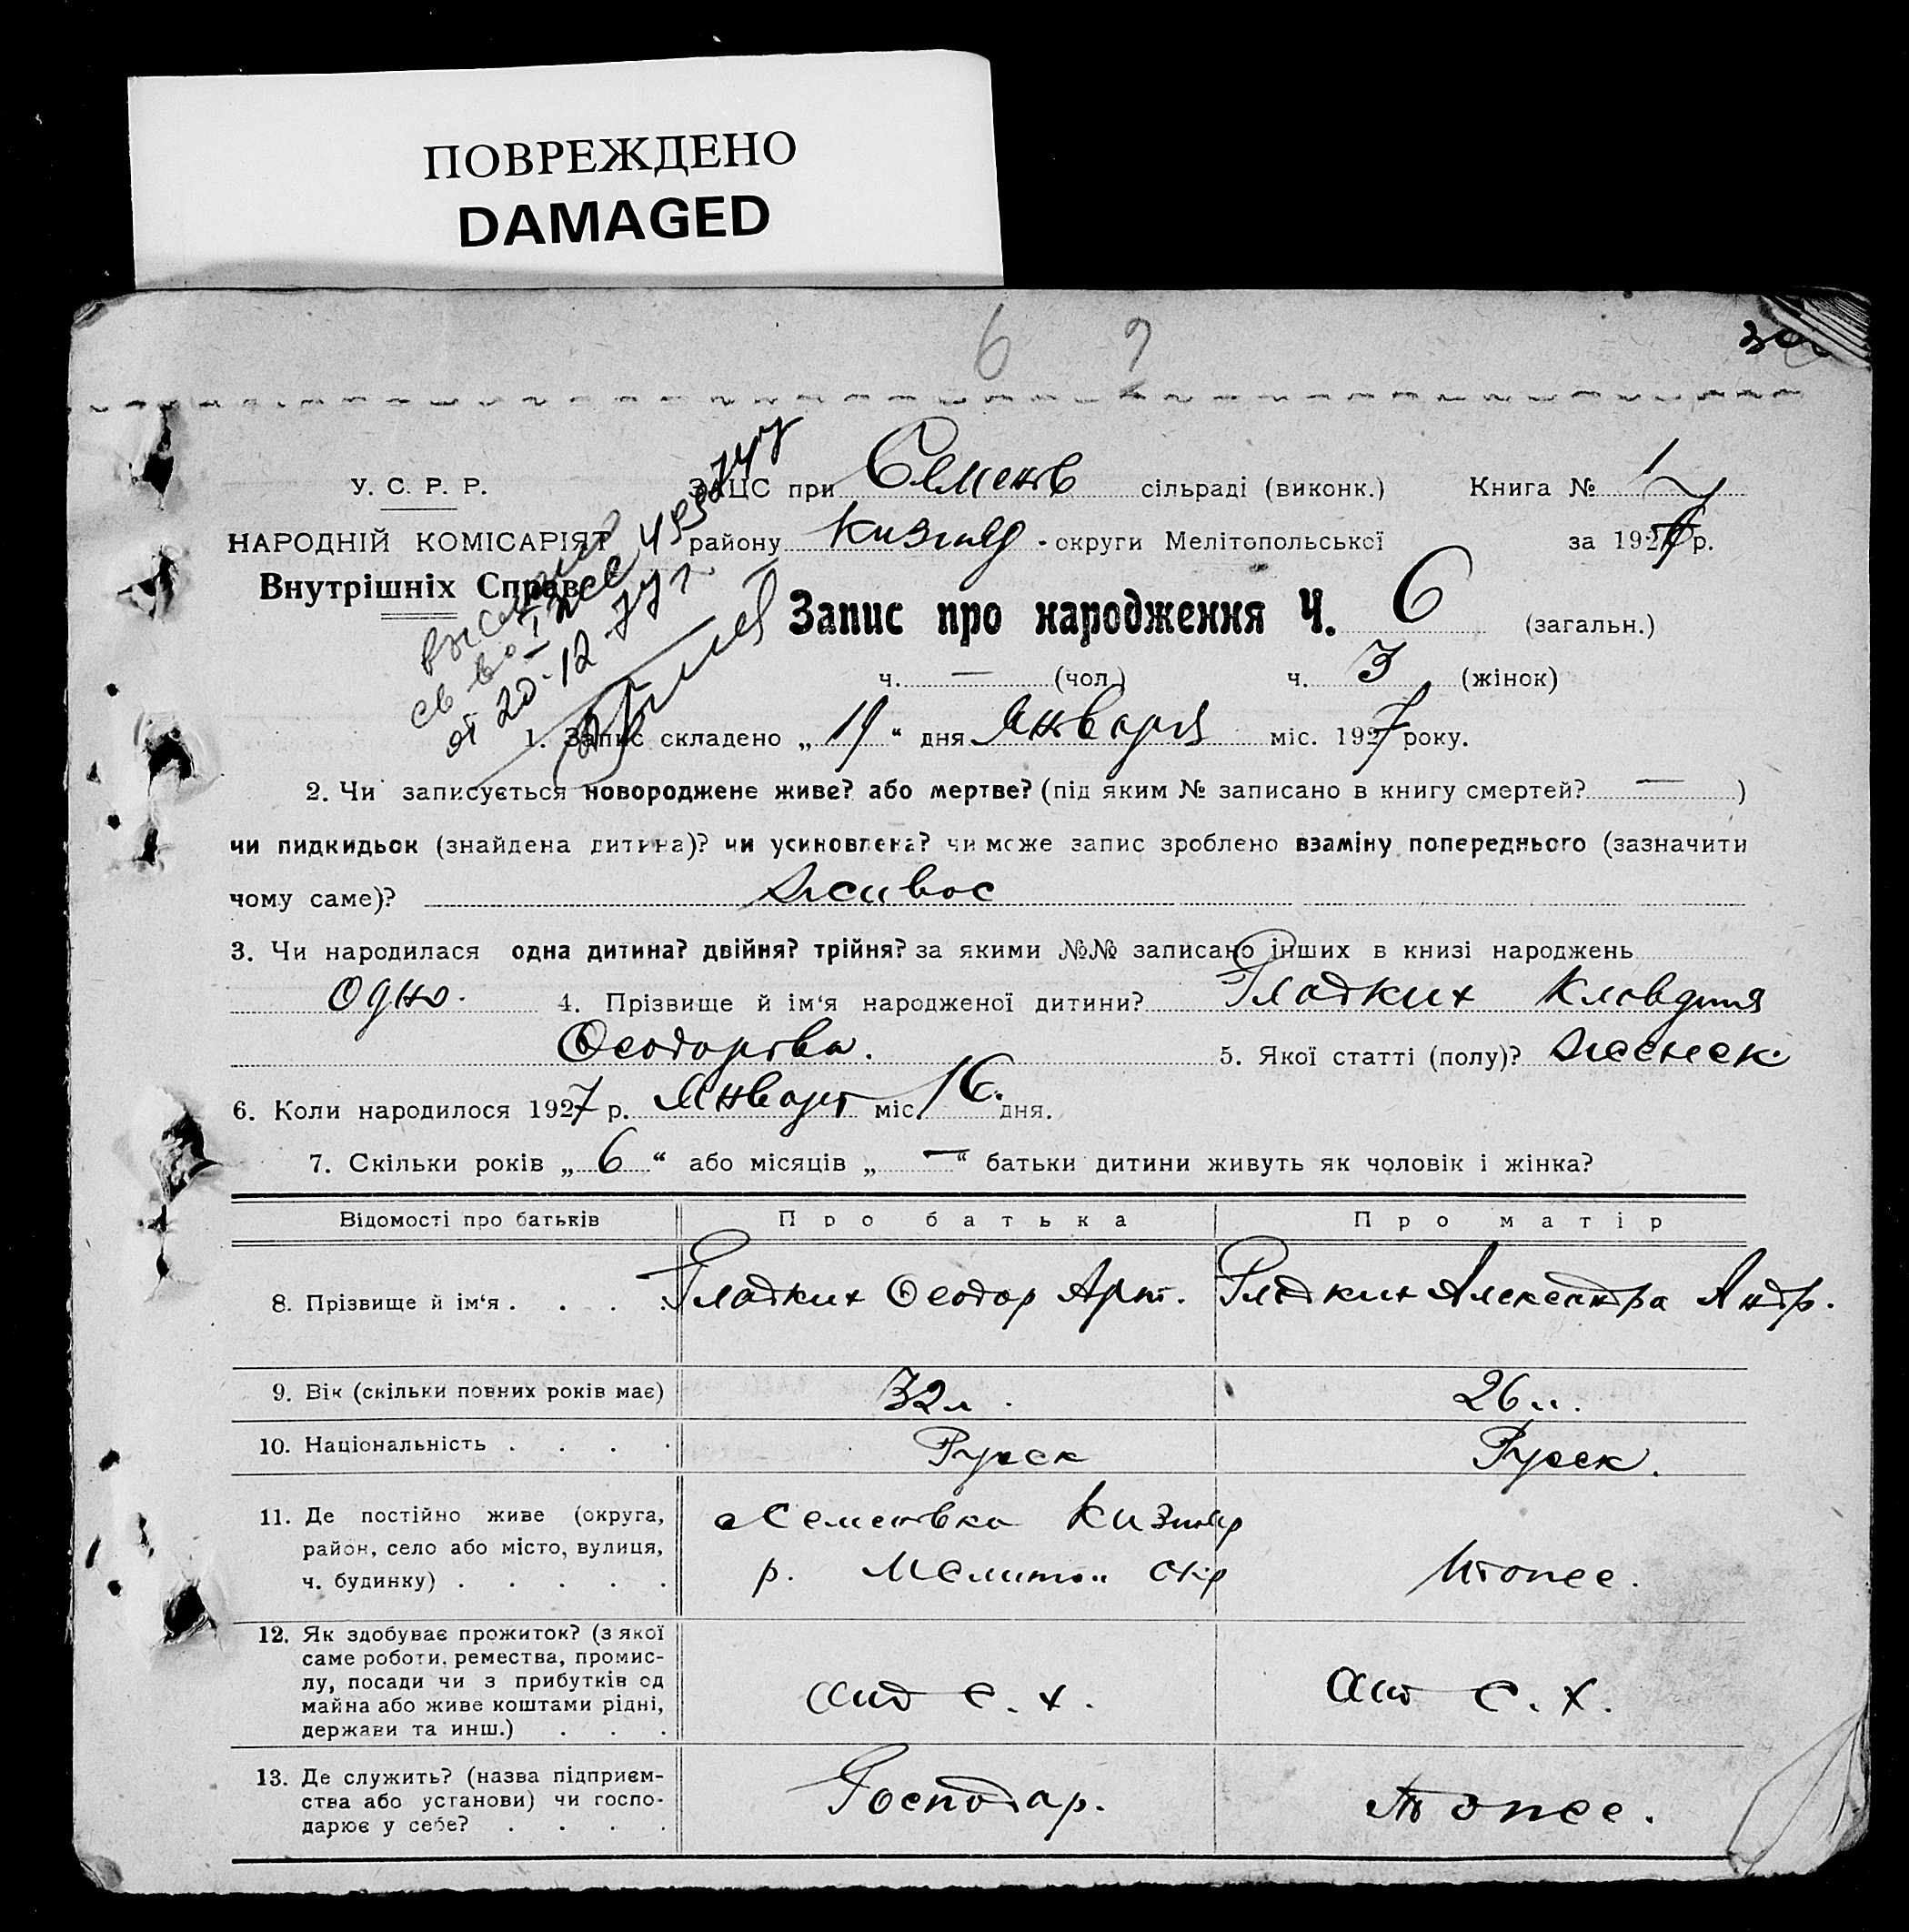 ПОВРЕЖДЕНО
DAMAGED
6 ?
У. С. Р. Р.
НАРОДНІЙ КОМІСАРІЯТ
Внутрішніх Справ
ЗАЦС при Семенв сільраді (виконк.) Книга № 1
району Кизияр округи Мелітопольської за 1927 р.
от 20-12-77 г.
Запис про народження Ч. 6 (загальн.)
ч. — (чол.) ч. 3 (жінок)
1. Запис складено „ 19 “ дня Января міс. 1927 року.
2. Чи записується новороджене живе? або мертве? (під яким № записано в книгу смертей? — )
чи пидкидьок (знайдена дитина)? чи усиновлена? чи може запис зроблено взаміну попереднього (зазначити
чому саме)? живое
3. Чи народилася одна дитина? двійня? трійня? за якими №№ записано інших в книзі народжень
Одно. 4. Прізвище й ім‘я народженої дитини? Гладких Клавдия
Феодоровна. 5. Якої статті (полу)? женск.
6. Коли народилося 1927 р. Январт міс. 16. дня.
7. Скільки років „ 6 “ або місяців „ — “ батьки дитини живуть як чоловік і жінка?
Відомості про батьків Про батька Про матір
8. Прізвище й ім‘я . . . . Гладких Феодор Арт. Гладких Александра Андр.
9. Вік (скільки повних років має) 32 л. 26 л.
10. Національність . . . . Русск Русск.
11. Де постійно живе (округа,
район, село або місто, вулиця,
ч. будинку) . . . . .
с Семеновка Кизияр
р. Мелитоп окр
Тоже.
12. Як здобуває прожиток? (з якої
саме роботи, ремества, промис-
лу, посади чи з прибутків од
майна або живе коштами рідні,
держави та инш.) . . .
от с. х.
от с. х.
13. Де служить? (назва підприєм-
ства або установи) чи госпо-
дарює у себе? . . . .
Господар.
Тоже.